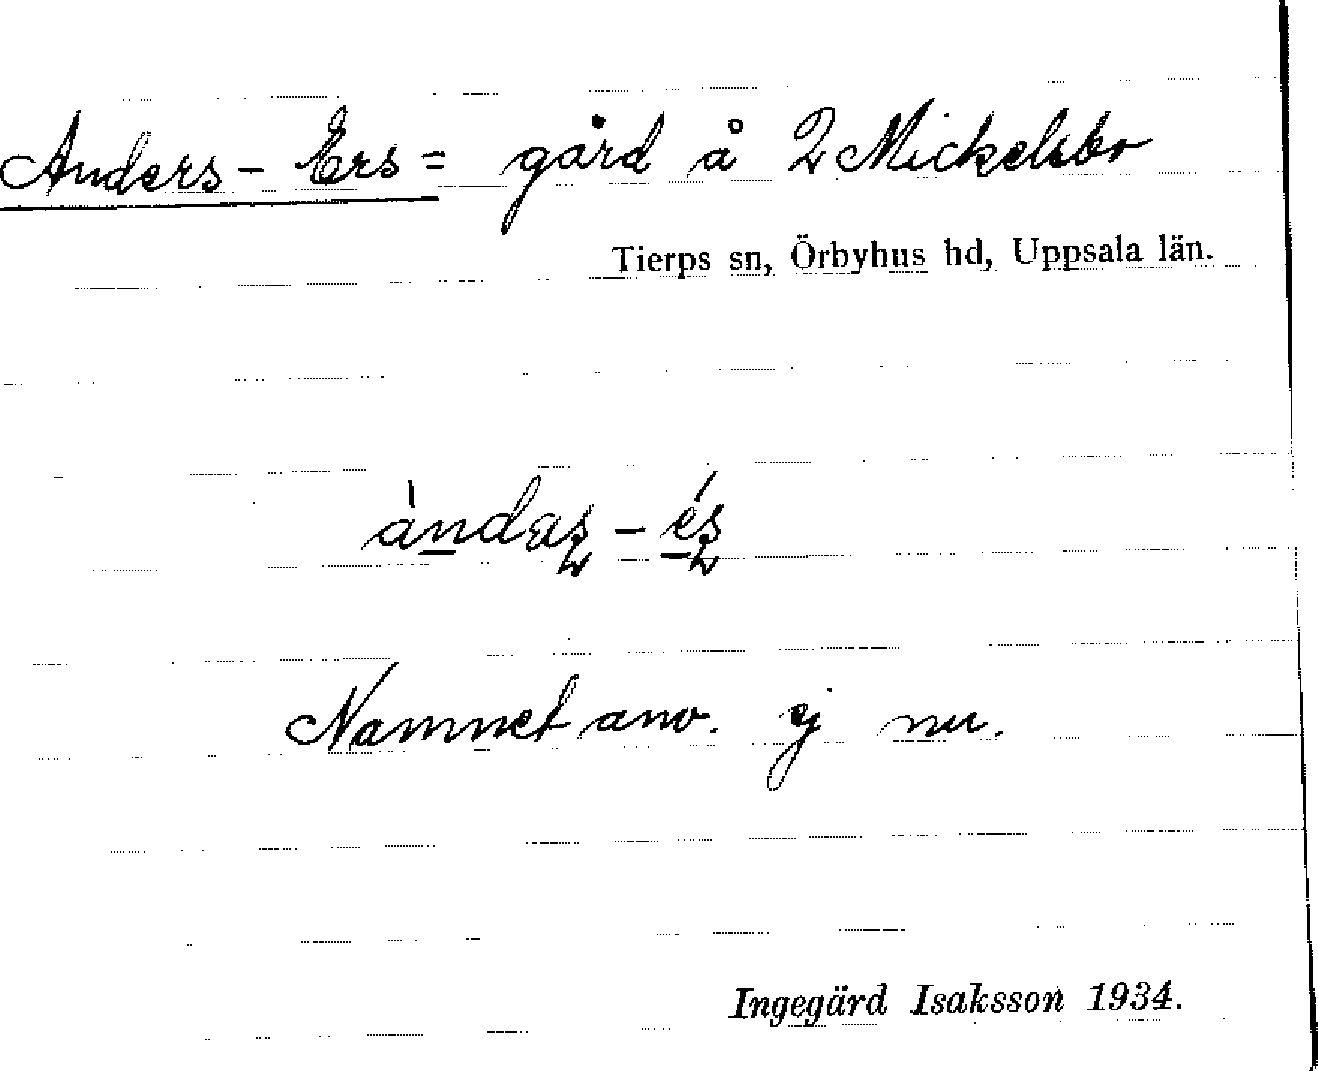 Anders-Ers= gård å 2 Mickelsbo
Tierps sn, Örbyhus hd, Uppsala län.
Namnet anv. ej nu.
Ingegärd Isaksson 1934.